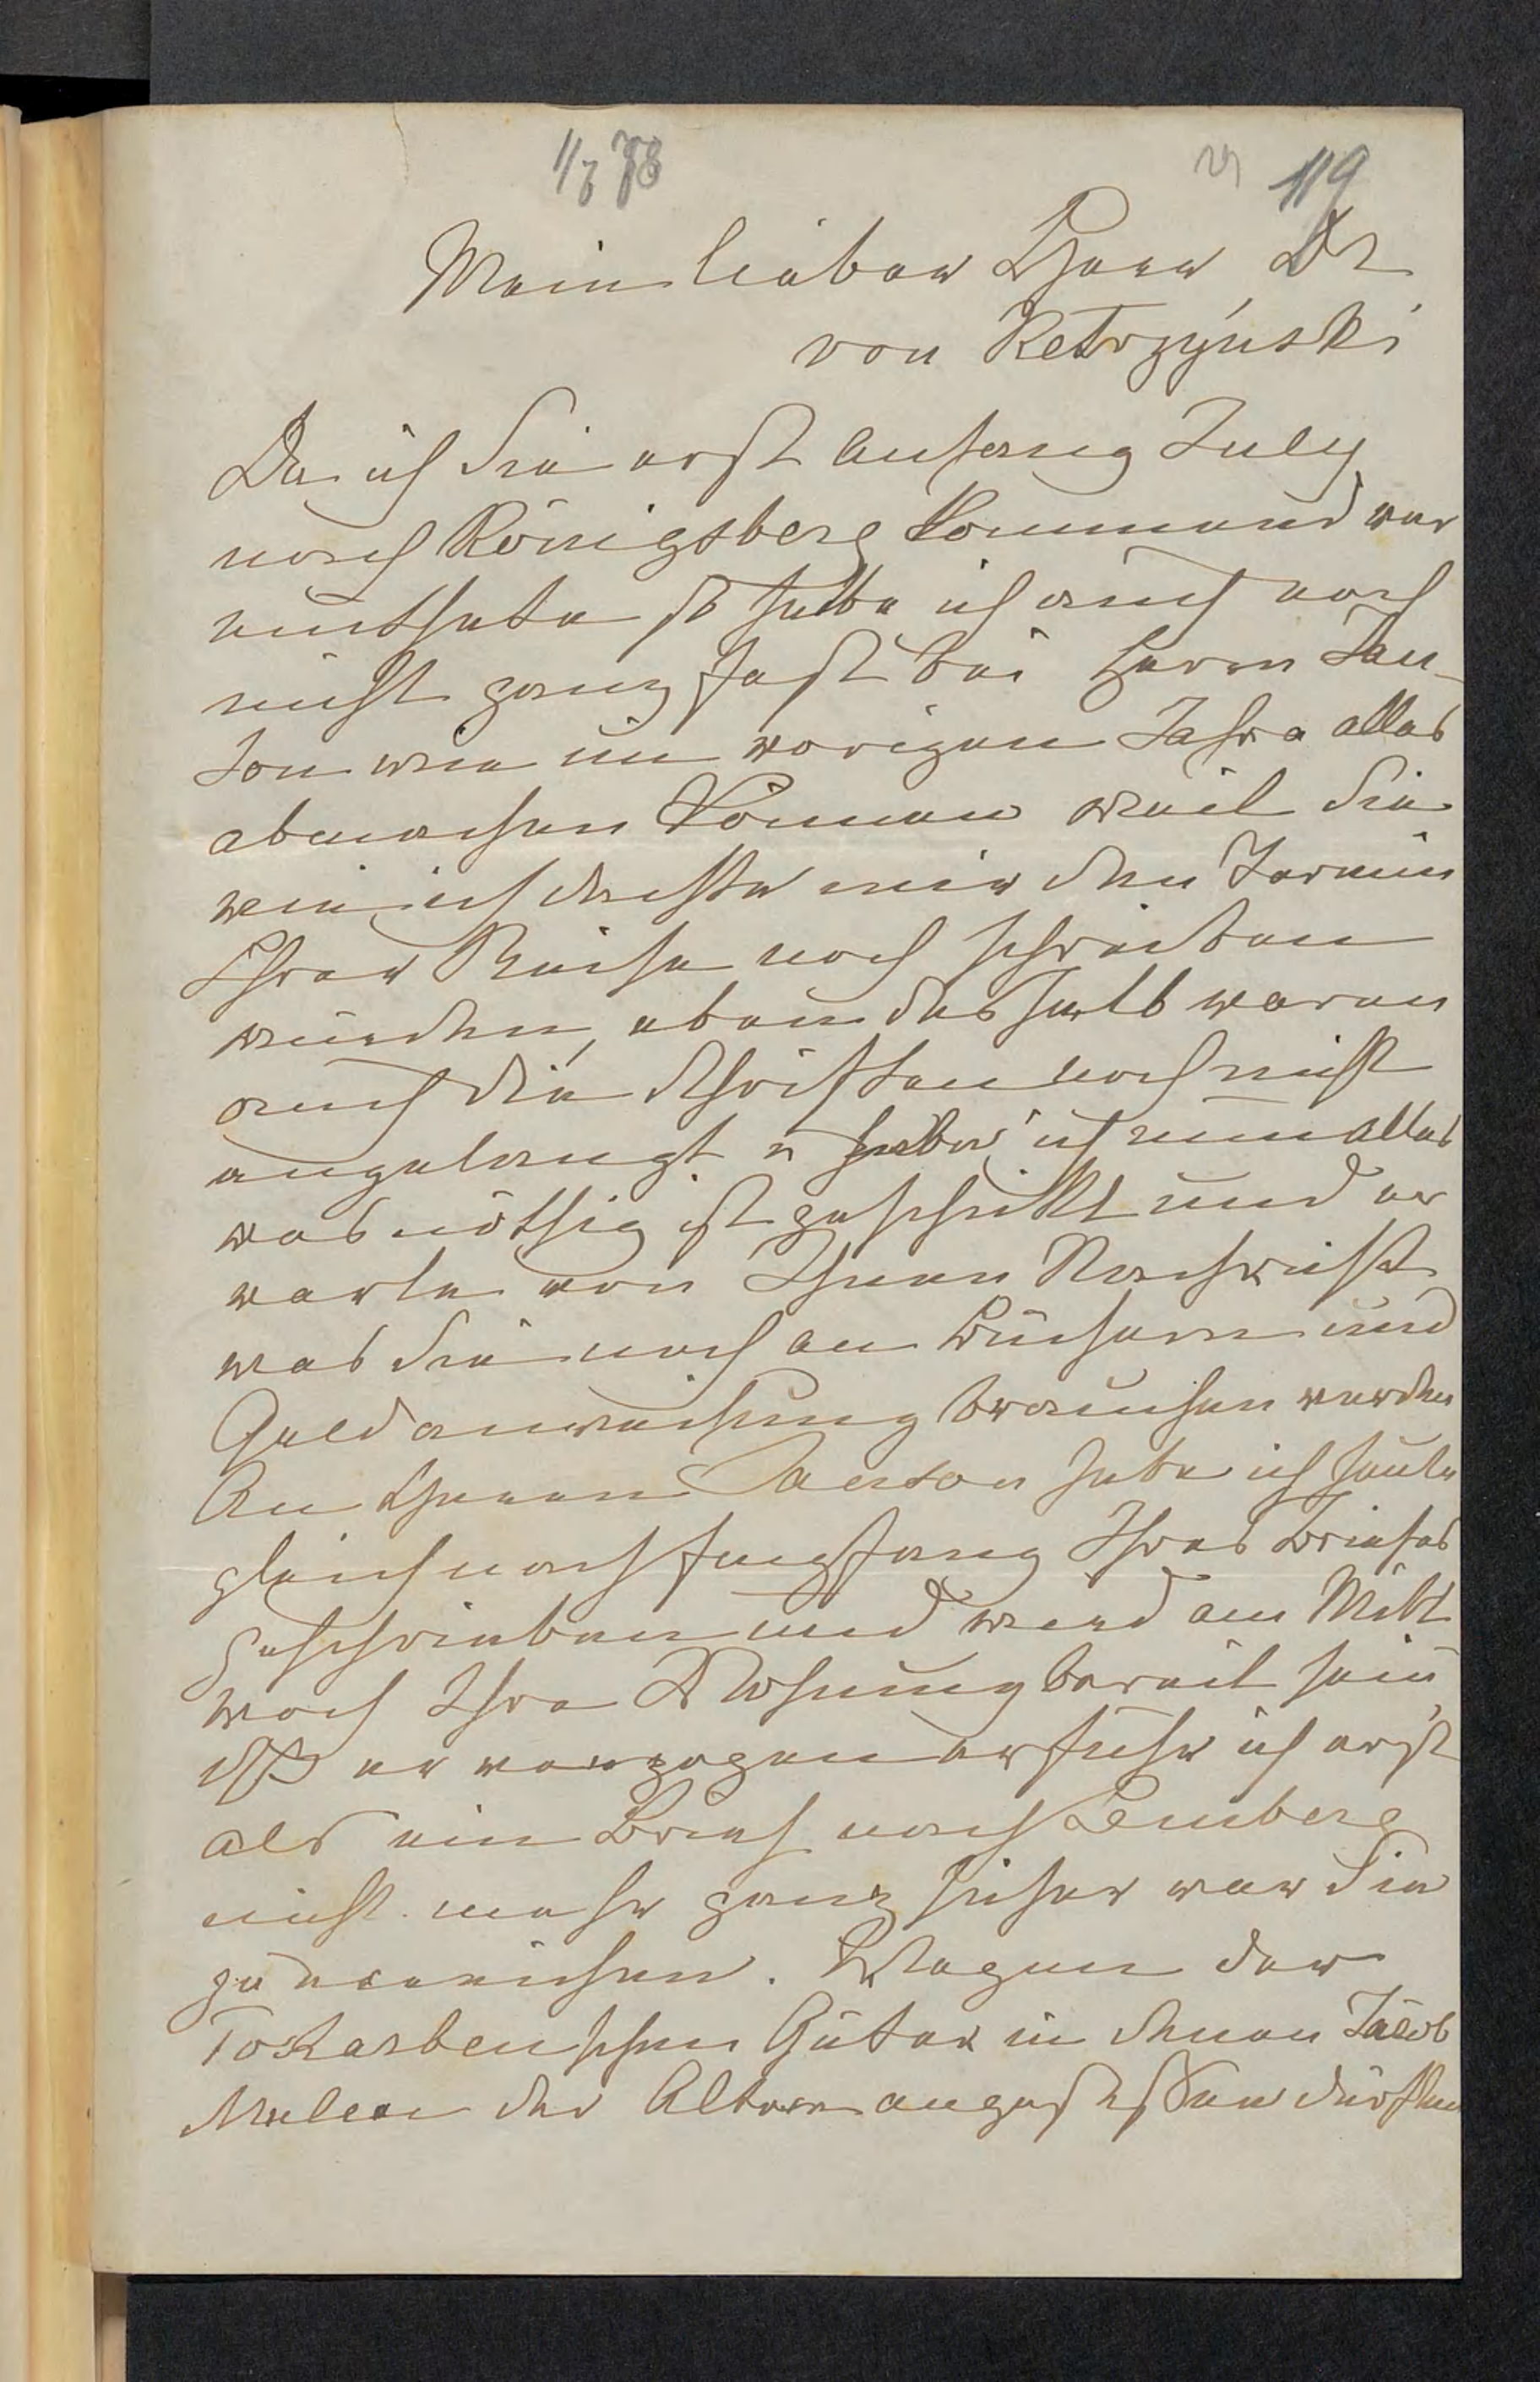 1/7 78
119
Mein lieber Herr Dr
von Kętrzyński
Da ich Sie erst Anfang July
nach Königsberg kommend ver
muthete so habe ich auch noch
nicht ganz fest bei Herrn
wie im vorigen Jahre alles
abmachen können weil Sie
wie ich dachte mir den Termin
Ihrer Reise noch schreiben
würden, eben deshalb waren
auch die Schriften noch nicht
angelangt u habe ich nun alles
was nöthig ist geschickt und er
warte von Ihnen Nachricht
was Sie noch an Büchern und
Geldanweisung brauchen werden
An Herrn habe ich heute
gleich nach Empfang Ihres Briefes
geschrieben und wird am Mitt
woch Ihre Wohnung bereit sein
daß er verzogen erfuhr ich erst
als ein Brief nach Lemberg
nicht mehr ganz sicher war Sie
zu erreichen. Wegen der
Güter in denen Jacob
der Altern angesessen dürften